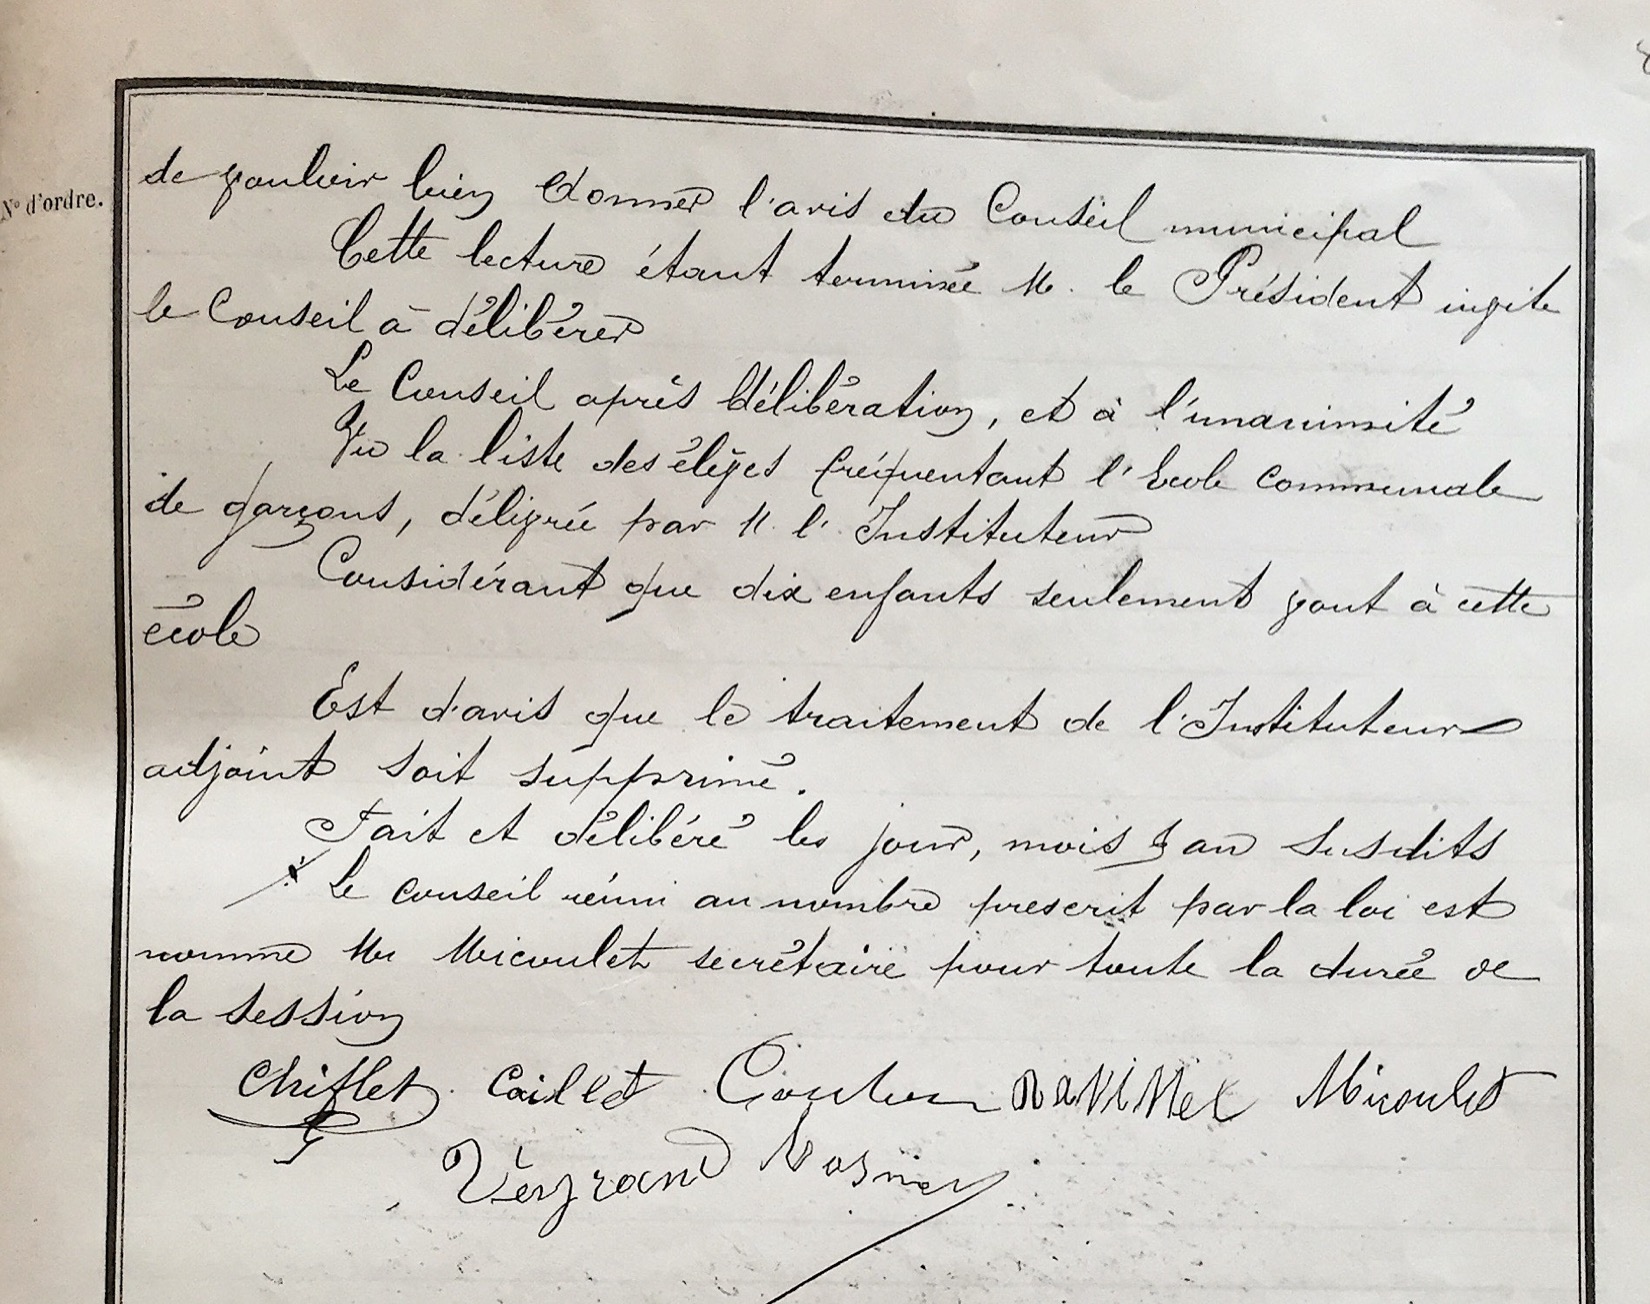 N° d'ordre.
de vouloir bien donner l'avis du Conseil municipal
Cette lecture étant terminée M. le Président invite
le Conseil à délibérer
Le Conseil après délibération, et à l'unanimité
Vu la liste des élèves fréquentant l'Ecole communale
de garçons, délivrée par M. l'Instituteur
Considérant que dix enfants seulement vont à cette
école
Est d'avis que le traitement de l'Instituteur
adjoint soit supprimé.
Fait et délibéré les jour, mois & an susdits
Le conseil réuni au nombre prescrit par la loi est
nommé Mr Micoulet secrétaire pour toute la durée de
la session
Chiflet Caillet Micoulet
Veyrand